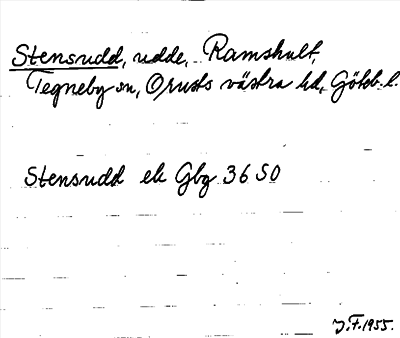 Stensudd, udde, Ramshult,
Tegneby sn, Orusts västra hd, Göteb. l.
Stensudd ek Gbg 36 SO
J.F. 1955.